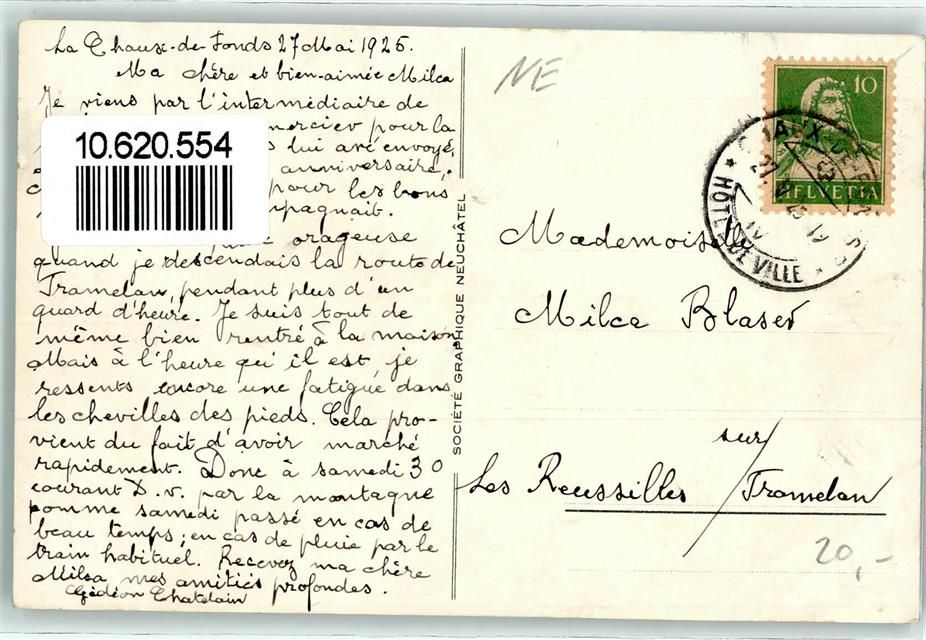 La Chaux-de-Fonds 27 Mai 1925.
Ma chère et bien-aimée Milca
Je viens par l'intermédiaire de
mercier pour la
lui avé envoyé,
anniversaire,
pour les bons
mpagnait.
orageuse
quand je descendais la route de
Tramelan, pendant plus d'un
quard d'heure. Je suis tout de
même bien rentré à la maison
Mais à l'heure qu'il est, je
ressents encore une fatigue dans
les chevilles des pieds. Cela pro-
vient du fait d'avoir marché
rapidement. Donc à samedi 30
courant D. v. par la montagne
comme samedi passé en cas de
beau temps; en cas de pluie par le
train habituel. Recevez ma chère
Milca mes amitiés profondes.
Gédéon Chatelain
10.620.554
SOCIÉTÉ GRAPHIQUE NEUCHÂTEL
NE
10
HELVETIA
HÔTEL DE VILLE
Mademoiselle
Milca Blaser
sur/
Les Reussilles / Tramelan
20,-